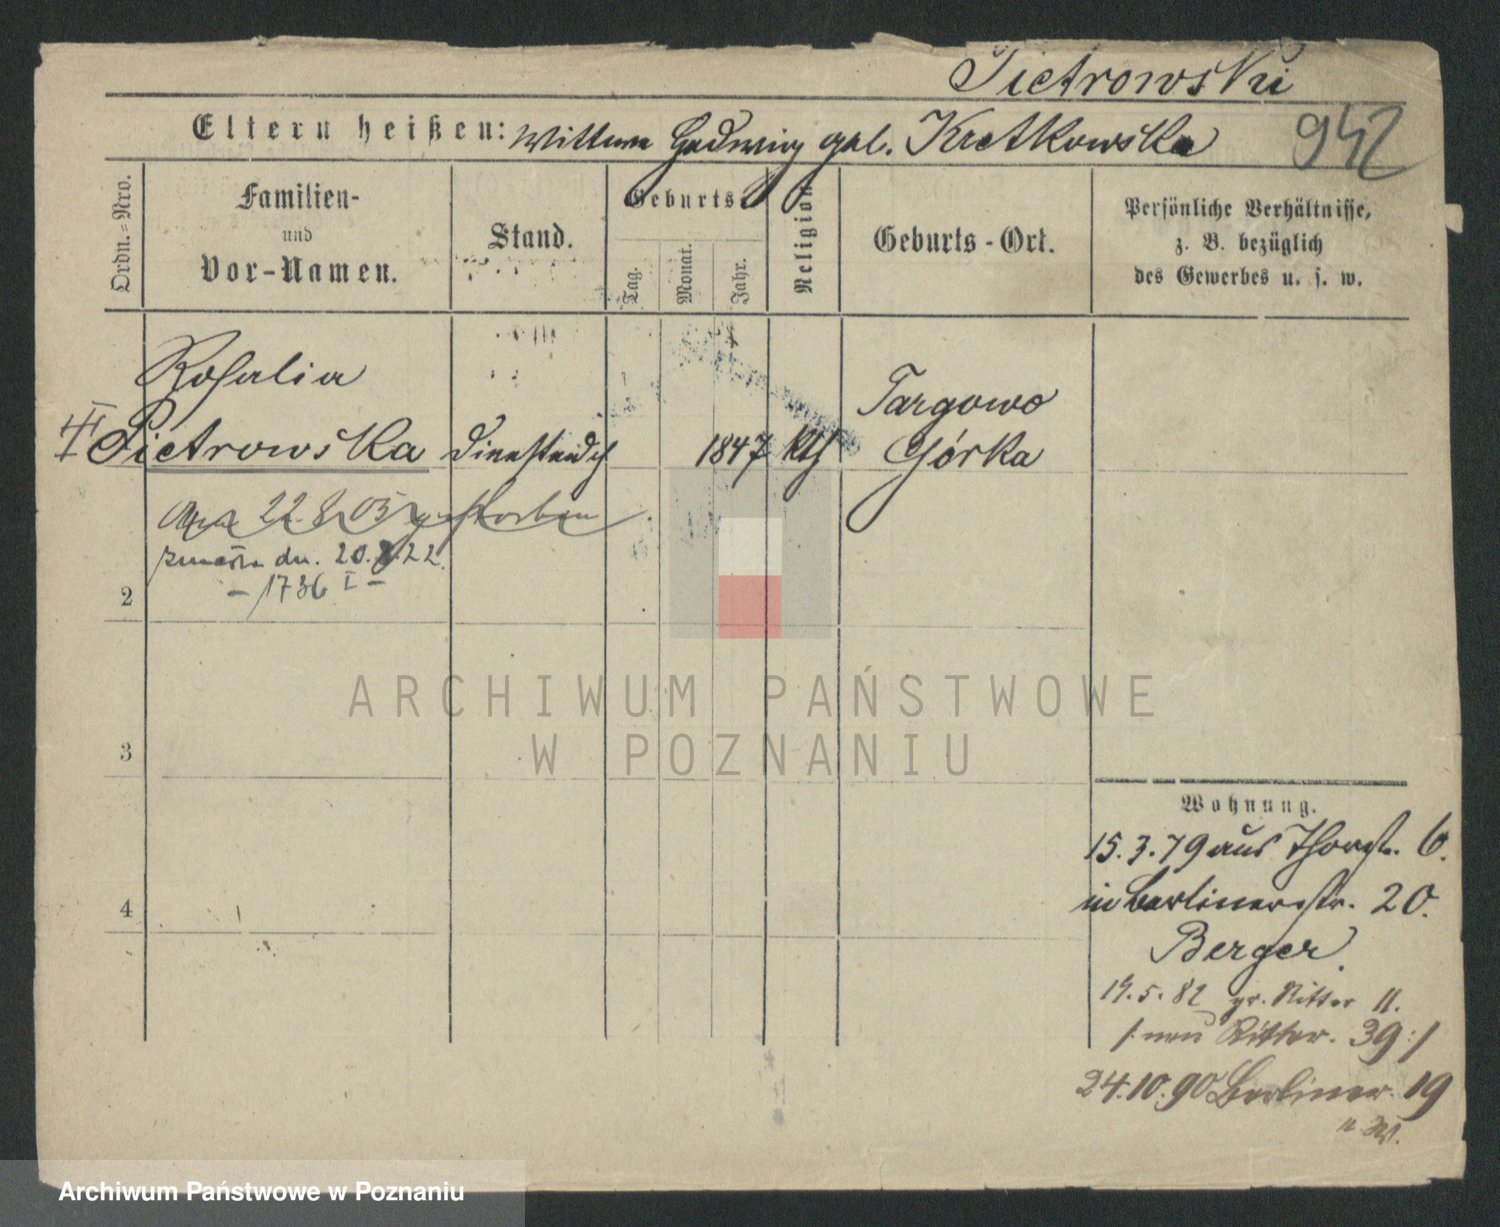 Pietrowski
Eltern heißen: Wittwe Hedwig geb. Kretkowska 942
Ordn.=Nro.
Familien-
und
Vor-Namen.
Stand.
Geburts-
Tag.
Monat.
Jahr.
Religion
Geburts-Ort.
Persönliche Verhältnisse,
z. B. bezüglich
des Gewerbes u. s. w.
Rosalia
Pietrowska Dienstmdch 1847 kth
Targowo
Górka
22.8.03 gestorben
zmarła dn. 20.8.22
– 1736 I –
2
3
4
Wohnung.
15.3.79 aus Thorstr. 6.
in Berlinerstr. 20.
Berger
19.5.82 gr. Ritter 11.
/: neu Ritter. 39 :/
24.10.90 Berliner. 19
ARCHIWUM PAŃSTWOWE
W POZNANIU
Archiwum Państwowe w Poznaniu